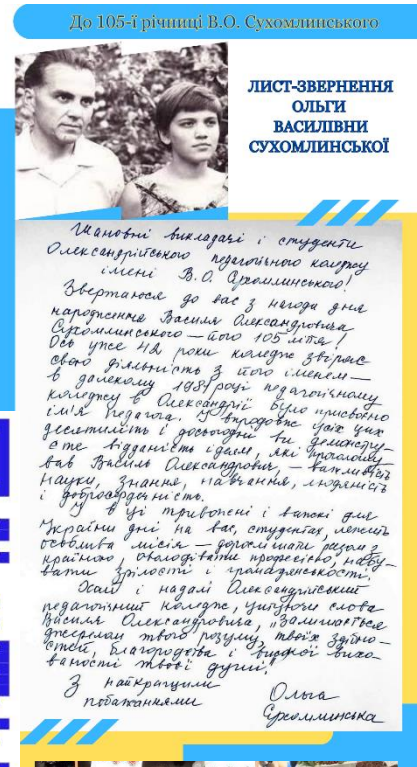 До 105-ї річниці В.О. Сухомлинського
ЛИСТ-ЗВЕРНЕННЯ
ОЛЬГИ
ВАСИЛІВНИ
СУХОМЛИНСЬКОЇ
Шановні викладачі і студенти
Олександрійського педагогічного коледжу
імені В.О. Сухомлинського!
Звертаюся до вас з нагоди дня
народження Василя Олександровича
Сухомлинського — його 105 ліття!
Ось уже 42 роки коледж звіряє
свою діяльність з його іменем —
в далекому 1981 році педагогічному
коледжу в Олександрії було присвоєно
ім'я педагога. І впродовж усіх цих
десятиліть і досьогодні ви демонстру-
єте відданість ідеям, які проголошу-
вав Василь Олександрович, — важливість
науки, знання, навчання, людяність
і добросердечність.
У ці тривожні і важкі для
України дні на вас, студентах, лежить
особлива місія — дорослішати разом з
країною, оволодівати професією, набу-
вати зрілості і громадянськості.
Хай і надалі Олександрійський
педагогічний коледж, цитуючи слова
Василя Олександровича, „Залишається
джерелом твого розуму, твоїх здібно-
стей, благородства і високої вихо-
ваності твоєї душі".
З найкращими
побажаннями
Ольга
Сухомлинська